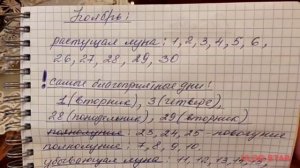 Ноябрь:
растущая луна: 1, 2, 3, 4, 5, 6,
26, 27, 28, 29, 30
! самые благоприятные дни:
1 (вторник), 3 (четверг),
28 (понедельник), 29 (вторник)
полнолуние: 23, 24, 25 новолуние
полнолуние: 7, 8, 9, 10.
убывающая луна: 11, 12, 13, 14, 15,